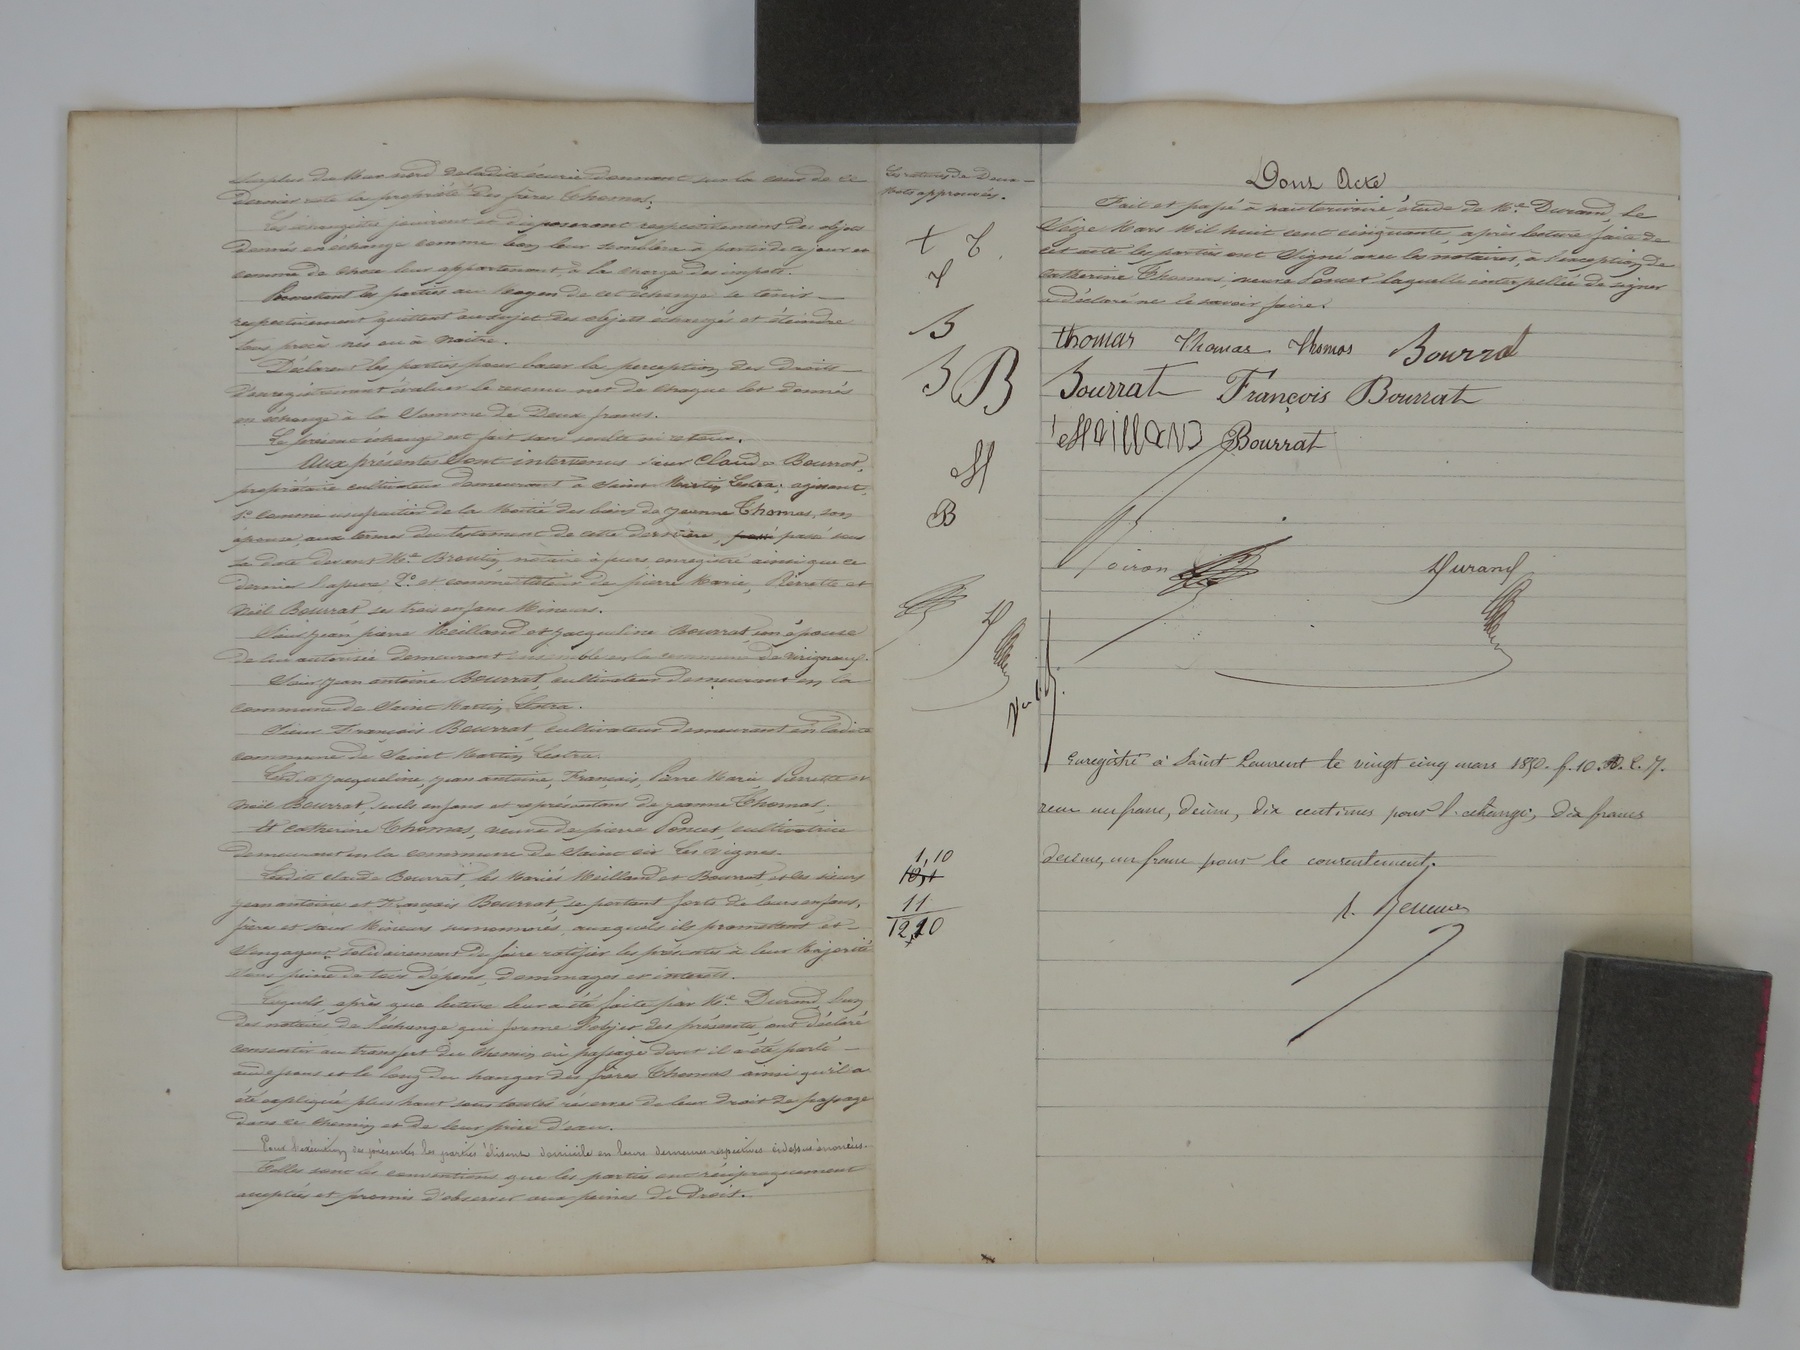 surplus du mur nord de ladite écurie donnant sur la cour de ce
dernier reste la propriété des frères Thomas.
Les échangistes jouiront et disposeront respectivement des objets
donnés en échange comme bon leur semblera à partir de ce jour et
comme de chose leur appartenant, à la charge des impôts.
Promettent les parties au moyen de cet échange se tenir
respectivement quittent au sujet des objets échangés et éteindre
tous procès nés ou à naître.
Déclarent les parties pour baser la perception des droits
d'enregistrement évaluer le revenu net de chaque lot donnés
en échange à la somme de deux francs.
Le présent échange est fait sans soulte ni retour.
Aux présentes sont intervenus sieur Claude Bourrat,
propriétaire cultivateur demeurant à Saint Martin Lestra, agissant,
1º comme usufruitier de la moitié des biens de Jeanne Thomas, son
épouse, aux termes du testament de cette dernière, passé passé sous
sa date devant Me notaire à enregistré ainsi que ce
dernier 2º et comme tuteur de pierre Marie, Pierrette et
Noël Bourrat ses trois enfans mineurs.
Sieur Jean pierre Meilland et Jacqueline Bourrat, son épouse
de lui autorisée demeurant ensemble en la commune de Virigneux.
Sieur Jean antoine Bourrat, cultivateur demeurant en la
commune de Saint Martin Lestra.
Sieur François Bourrat, cultivateur demeurant en ladite
commune de Saint Martin Lestra.
Lesdits Jacqueline, Jean antoine, François, Pierre Marie Pierrette et
Noël Bourrat, seuls enfans et représentans de Jeanne Thomas.
Et Catherine Thomas, veuve de pierre Poncet, cultivatrice
demeurant en la commune de Saint cir les vignes.
Lesdits Claude Bourrat, les mariés Meilland et Bourrat, et les sieurs
Jean antoine et François Bourrat, se portant forts de leurs enfans,
frères et sœur mineurs surnommés, auxquels ils promettent et
s'engagent solidairement de faire ratifier les présentes à leur majorité
sous peine de tous dépens, dommages et intérêts.
Lesquels après que lecture leur a été faite par Me Durand, l'un
des notaires de l'échange qui forme l'objet des présentes, ont déclaré
consentir au transfert du chemin ou passage dont il a été parlé
au devant et le long du hangar des frères Thomas ainsi qu'il a
été expliqué plus haut sous toutes réserves de leur droit de passage
dans ce chemin et de leur prise d'eau.
Pour l'exécution des présentes les parties élisent domicile en leurs demeures respectives ci dessus énoncées.
Telles sont les conventions que les parties ont réciproquement
acceptées et promis d'observer aux peines de droit.
Les ratures de Deux
Mots approuvés.
t T
T
B
B B
M
B
D
1,10
11
12,10
Dont Acte
Fait et passé à étude de Me Durand, le
Seize Mars Mil huit cent cinquante, après lecture faite de
cet acte les parties ont signé avec les notaires, à l'exception de
Catherine Thomas, veuve Poncet laquelle interpellée de signer
a déclaré ne le savoir faire.
thomas Thomas Thomas Bourrat
Bourrat François Bourrat
Bourrat
Voiron Durand
Enregistré à Saint Laurent le vingt cinq mars 1850. f. 10. R. C. 7.
reçu un franc, décime, dix centimes pour l'échange, dix francs
décime, un franc pour le consentement.